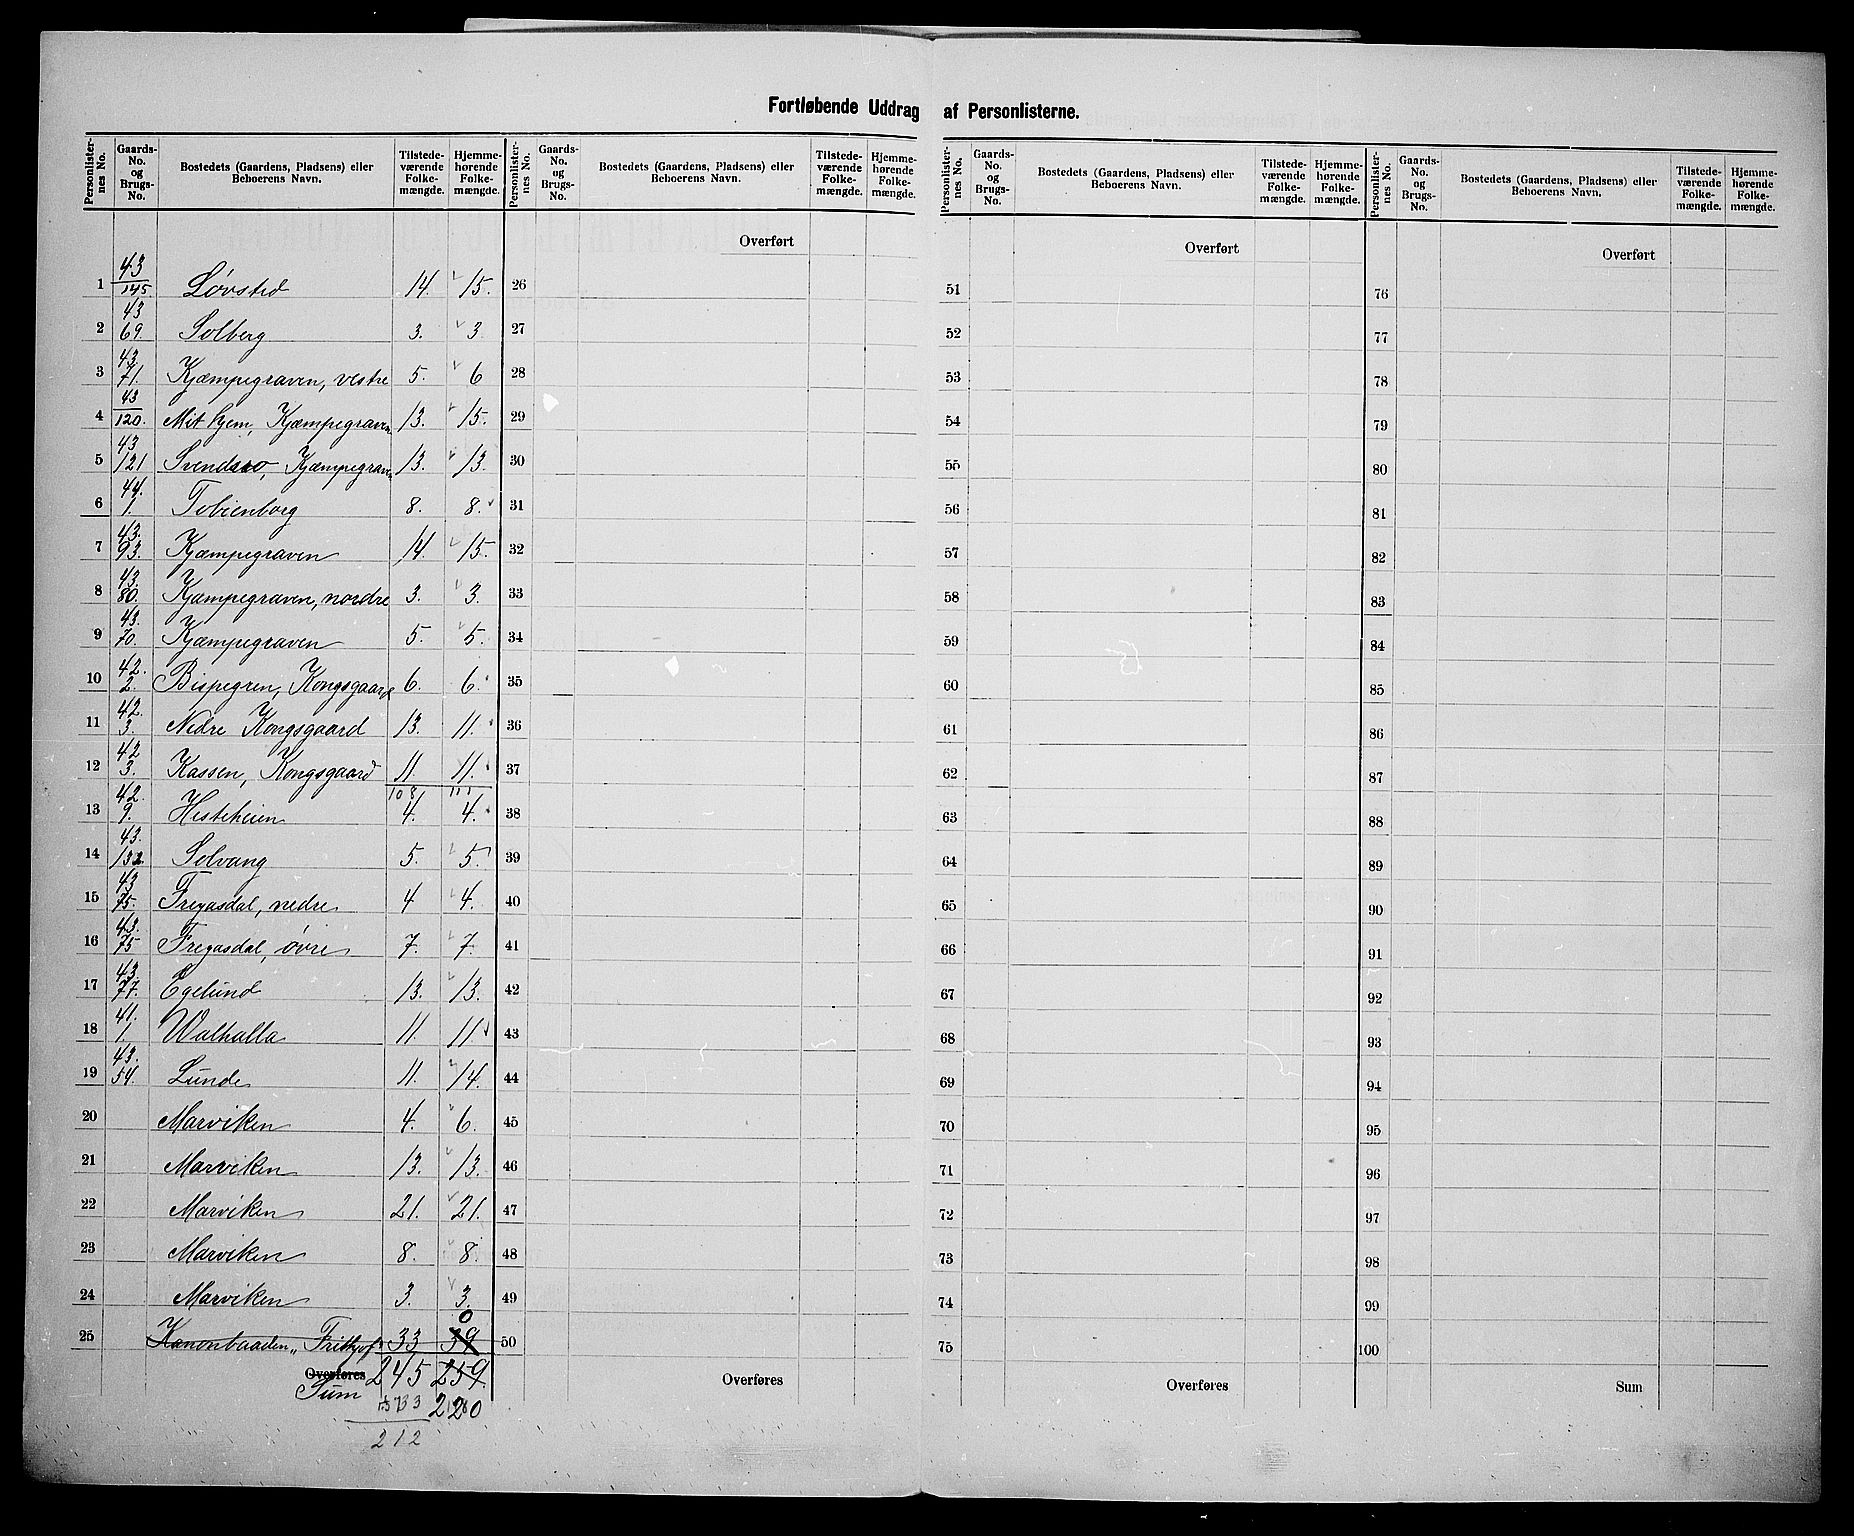 Fortløbende Uddrag af Personlisterne.
Personlister-nes No. | Gaards-No. og Brugs-No. | Bostedets (Gaardens, Pladsens) eller Beboerens Navn. | Tilstede-værende Folke-mængde. | Hjemme-hørende Folke-mængde.
1 | 43/145 | Løvsted | 14. | 15.
2 | 43 69. | Solberg | 3. | 3
3 | 43. 71. | Kjæmpegraven, vestre | 5. | 6
4 | 43/120. | Mit hjem, Kjæmpegraven | 13. | 15.
5 | 43 121 | Svendsro, Kjæmpegraven | 13. | 13.
6 | 44. 1. | Tobienborg | 8. | 8.
7 | 43. 93. | Kjæmpegraven | 14. | 15.
8 | 43. 80. | Kjæmpegraven, nordre | 3. | 3.
9 | 43. 70. | Kjæmpegraven | 5. | 5.
10 | 42. 2. | Bispegren, Kongsgaard | 6. | 6.
11 | 42. 3. | Nedre Kongsgaard | 13. | 11.
12 | 42 3. | Kassen, Kongsgaard | 11. | 11.
108 | 111
13 | 42. 9. | Hesteheien | 4. | 4.
14 | 43. 132 | Solvang | 5. | 5.
15 | 43 75. | Fregasdal, nedre | 4 | 4.
16 | 43. 75 | Fregasdal, øvre | 7. | 7.
17 | 43. 77. | Egelund | 13. | 13.
18 | 41. 1. | Walhalla | 11. | 11
19 | 43. 54. | Lunde | 11. | 14.
20 | Marviken | 4. | 6.
21 | Marviken | 13. | 13.
22 | Marviken | 21. | 21.
23 | Marviken | 8. | 8.
24 | Marviken | 3. | 3.
0
25 | Kanonbaaden „Frithjof" | 33 | 39
Overføres 245 259.
Sum 33 220
212
Personlister-nes No. | Gaards-No. og Brugs-No. | Bostedets (Gaardens, Pladsens) eller Beboerens Navn. | Tilstede-værende Folke-mængde. | Hjemme-hørende Folke-mængde.
Overført
26
27
28
29
30
31
32
33
34
35
36
37
38
39
40
41
42
43
44
45
46
47
48
49
50
Overføres
Personlister-nes No. | Gaards-No. og Brugs-No. | Bostedets (Gaardens, Pladsens) eller Beboerens Navn. | Tilstede-værende Folke-mængde. | Hjemme-hørende Folke-mængde.
Overført
51
52
53
54
55
56
57
58
59
60
61
62
63
64
65
66
67
68
69
70
71
72
73
74
75
Overføres
Personlister-nes No. | Gaards-No. og Brugs-No. | Bostedets (Gaardens, Pladsens) eller Beboerens Navn. | Tilstede-værende Folke-mængde. | Hjemme-hørende Folke-mængde.
Overført
76
77
78
79
80
81
82
83
84
85
86
87
88
89
90
91
92
93
94
95
96
97
98
99
100
Sum